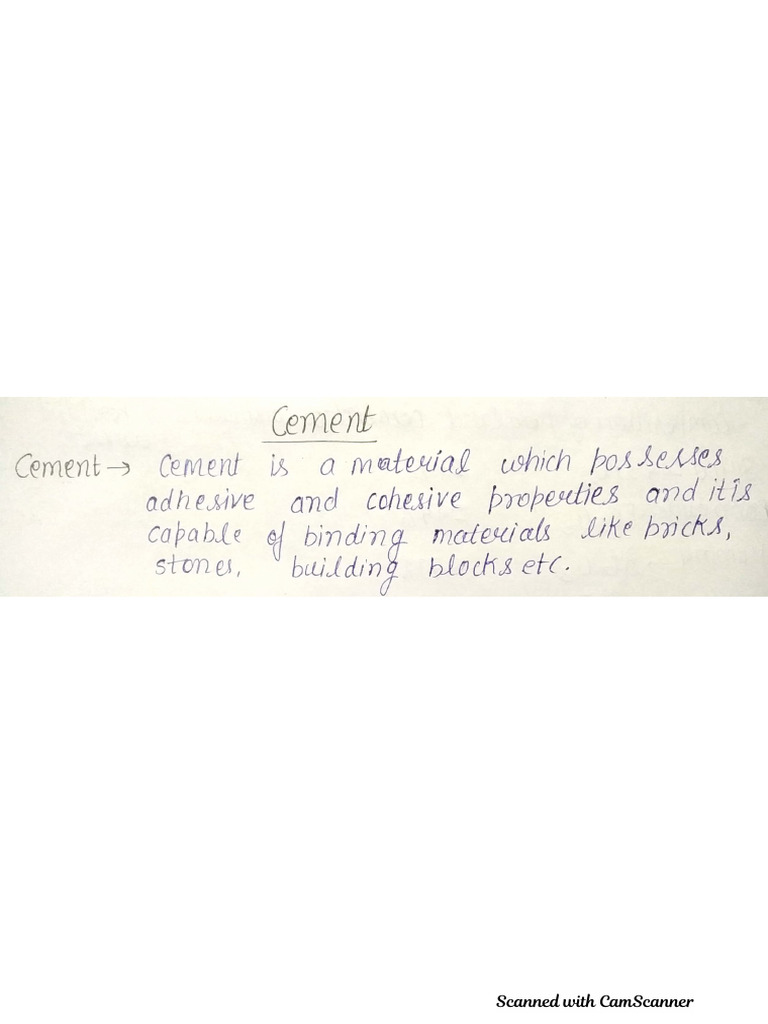 Cement
Cement → Cement is a material which possesses
adhesive and cohesive properties and it is
capable of binding materials like bricks,
stones, building blocks etc.
Scanned with CamScanner